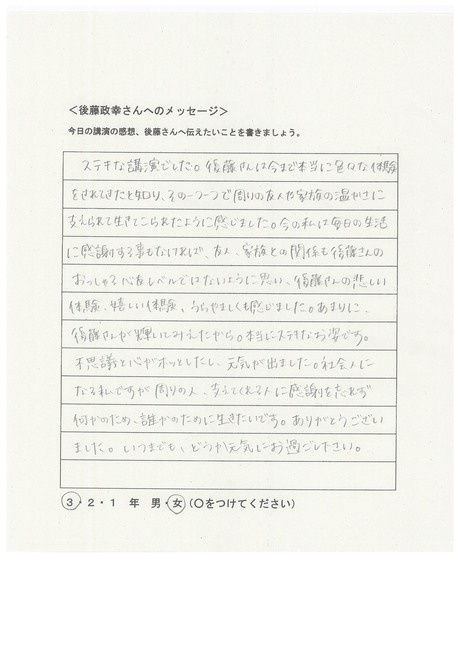 ＜後藤政幸さんへのメッセージ＞
今日の講演の感想、後藤さんへ伝えたいことを書きましょう。
ステキな講演でした。後藤さんは今まで本当に色々な体験
をされてきたと知り、その一つ一つで周りの友人や家族の温かさに
支えられて生きてこられたように感じました。今の私は毎日の生活
に感謝する事もなければ、友人、家族との関係も後藤さんの
おっしゃる心友レベルではないように思い、後藤さんの悲しい
体験、嬉しい体験、うらやましくも感じました。あまりに、
後藤さんが輝いてみえたから。本当にステキなお姿です。
不思議と心がホッとしたし、元気が出ました。社会人に
なる私ですが周りの人、支えてくれる人に感謝を忘れず
何かのため、誰かのために生きたいです。ありがとうござい
ました。いつまでも、どうか元気にお過ごし下さい。
3・2・1 年 男・女（○をつけてください）